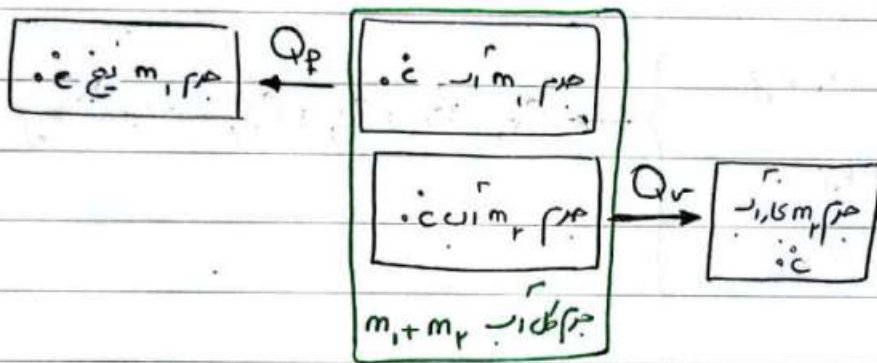 جرم m₁ یخ 0°C
Q_f
جرم m₁ آب 0°C
جرم m₂ آب 0°C
Q_v
جرم m₂ بخار آب
0°C
جرم کل آب m₁ + m₂